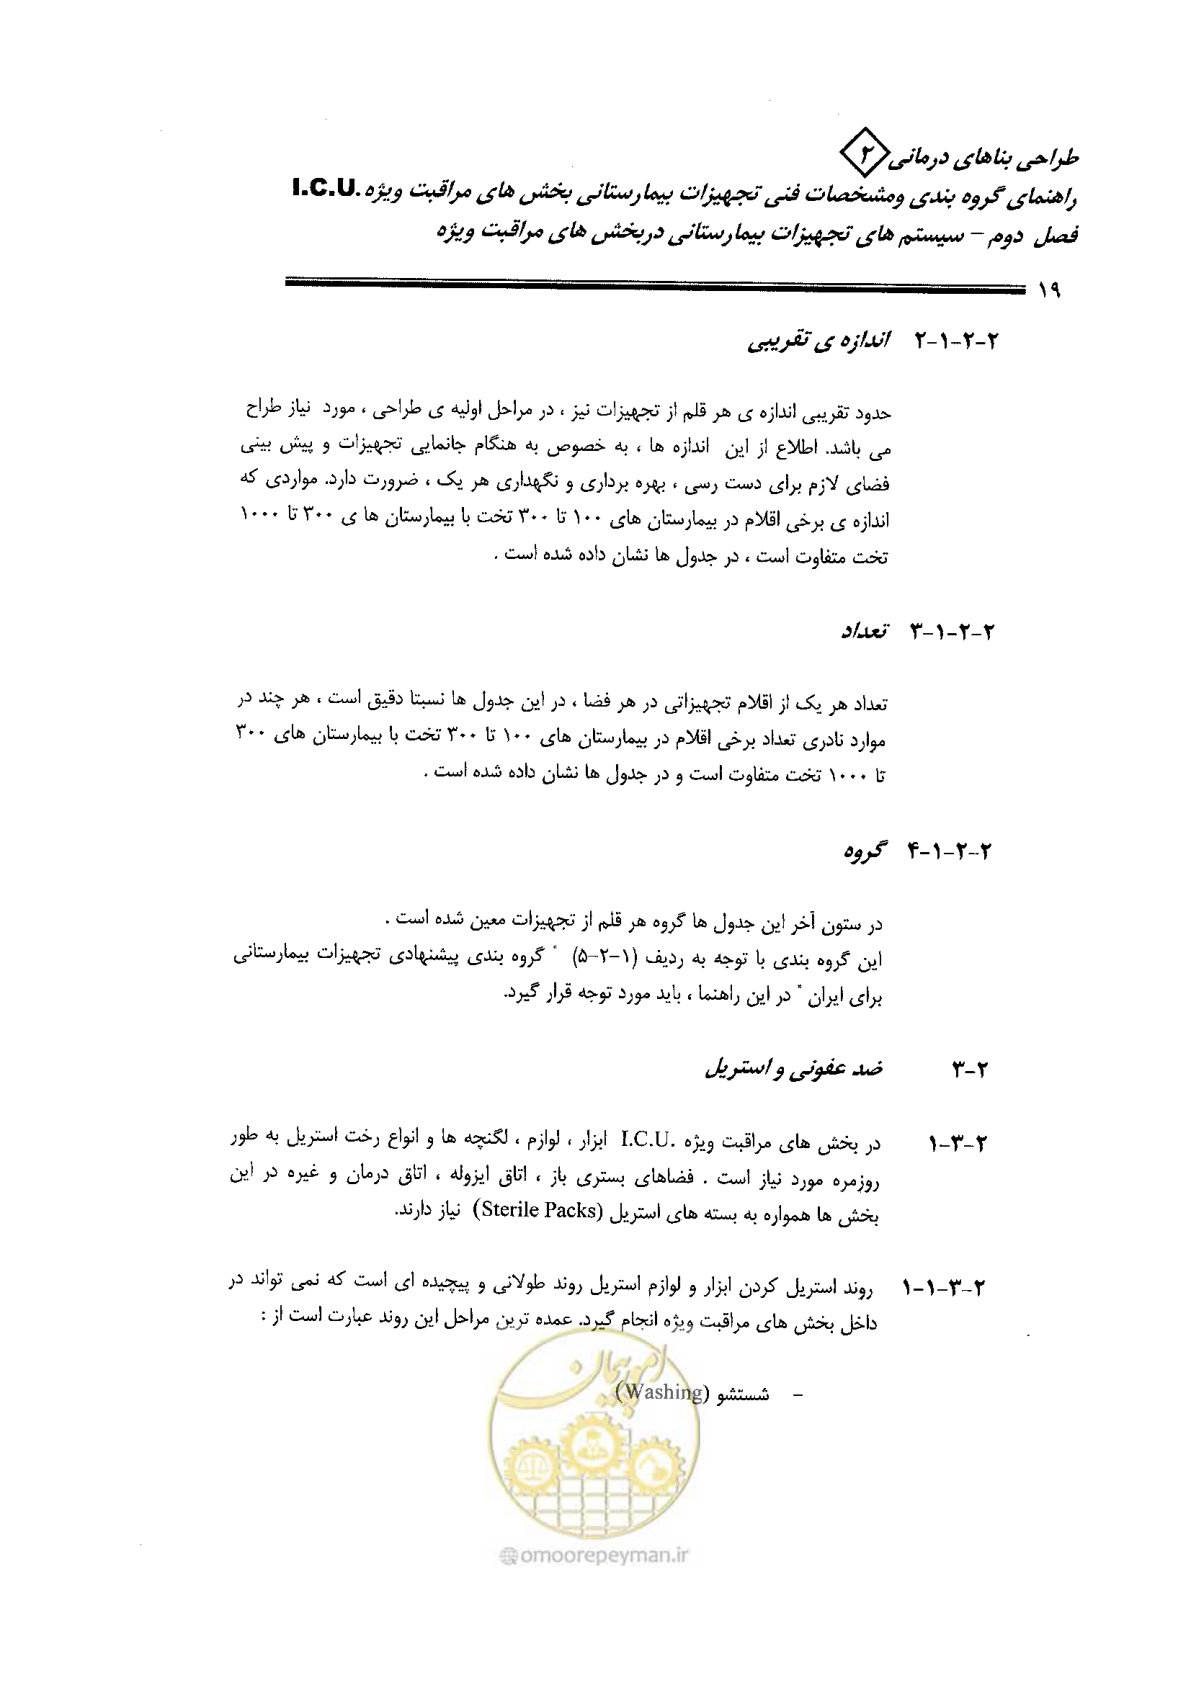 طراحی بناهای درمانی ۲
راهنمای گروه بندی ومشخصات فنی تجهیزات بیمارستانی بخش های مراقبت ویژه I.C.U.
فصل دوم – سیستم های تجهیزات بیمارستانی دربخش های مراقبت ویژه
۱۹
۲-۲-۱-۲ اندازه ی تقریبی
حدود تقریبی اندازه ی هر قلم از تجهیزات نیز ، در مراحل اولیه ی طراحی ، مورد نیاز طراح
می باشد. اطلاع از این اندازه ها ، به خصوص به هنگام جانمایی تجهیزات و پیش بینی
فضای لازم برای دست رسی ، بهره برداری و نگهداری هر یک ، ضرورت دارد. مواردی که
اندازه ی برخی اقلام در بیمارستان های ۱۰۰ تا ۳۰۰ تخت با بیمارستان ها ی ۳۰۰ تا ۱۰۰۰
تخت متفاوت است ، در جدول ها نشان داده شده است .
۲-۲-۱-۳ تعداد
تعداد هر یک از اقلام تجهیزاتی در هر فضا ، در این جدول ها نسبتا دقیق است ، هر چند در
موارد نادری تعداد برخی اقلام در بیمارستان های ۱۰۰ تا ۳۰۰ تخت با بیمارستان های ۳۰۰
تا ۱۰۰۰ تخت متفاوت است و در جدول ها نشان داده شده است .
۲-۲-۱-۴ گروه
در ستون آخر این جدول ها گروه هر قلم از تجهیزات معین شده است .
این گروه بندی با توجه به ردیف (۱-۲-۵) " گروه بندی پیشنهادی تجهیزات بیمارستانی
برای ایران " در این راهنما ، باید مورد توجه قرار گیرد.
۲-۳ ضد عفونی و استریل
۲-۳-۱ در بخش های مراقبت ویژه I.C.U. ابزار ، لوازم ، لگنچه ها و انواع رخت استریل به طور
روزمره مورد نیاز است . فضاهای بستری باز ، اتاق ایزوله ، اتاق درمان و غیره در این
بخش ها همواره به بسته های استریل (Sterile Packs) نیاز دارند.
۲-۳-۱-۱ روند استریل کردن ابزار و لوازم استریل روند طولانی و پیچیده ای است که نمی تواند در
داخل بخش های مراقبت ویژه انجام گیرد. عمده ترین مراحل این روند عبارت است از :
– شستشو (Washing)
امور پیمان
@omoorepeyman.ir